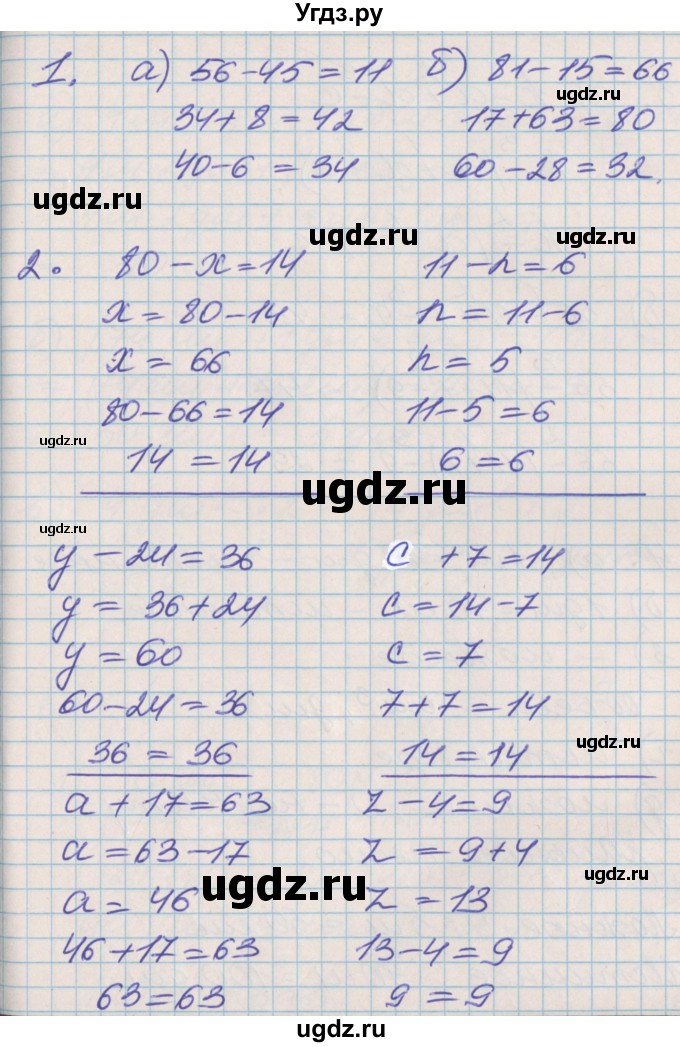 Угдз.ру
1. а) 56-45=11 б) 81-15=66
ugdz.ru
34+8=42 17+63=80
40-6=34 60-28=32.
ugdz.ru
ugdz.ru
ugdz.ru
2. 80-x=14 11-n=6
x=80-14 n=11-6
x=66 n=5
80-66=14 11-5=6
ugdz.ru
14=14 6=6
ugdz.ru
ugdz.ru
y-24=36 c+7=14
y=36+24 c=14-7
y=60 c=7
60-24=36 7+7=14
36=36 14=14
ugdz.ru
a+17=63 z-4=9
a=63-17 z=9+4
ugdz.ru
ugdz.ru
a=46 z=13
46+17=63 13-4=9
63=63 9=9
ugdz.ru